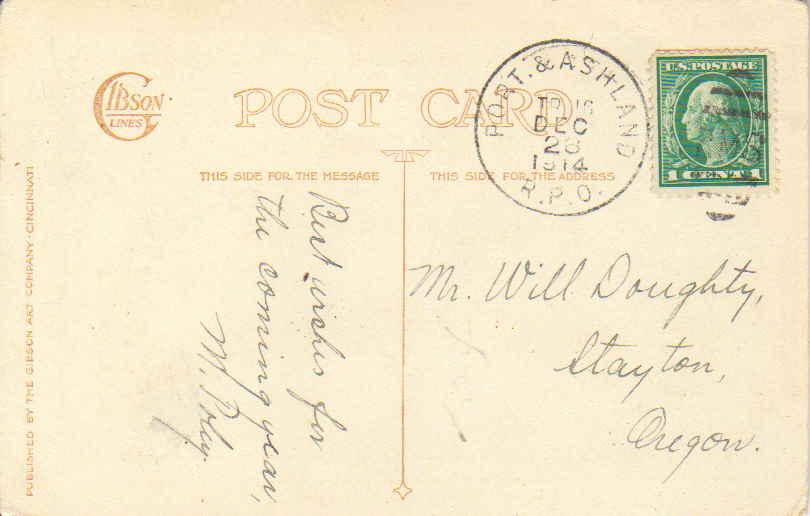 GIBSON
LINES
POST CARD
THIS SIDE FOR THE MESSAGE
THIS SIDE FOR THE ADDRESS
PORT. & ASHLAND
DEC
28
1914
R.P.O.
U.S. POSTAGE
1 CENT 1
Best wishes for
the coming year,
M.
Mr. Will Doughty,
Stayton,
Oregon.
PUBLISHED BY THE GIBSON ART COMPANY · CINCINNATI